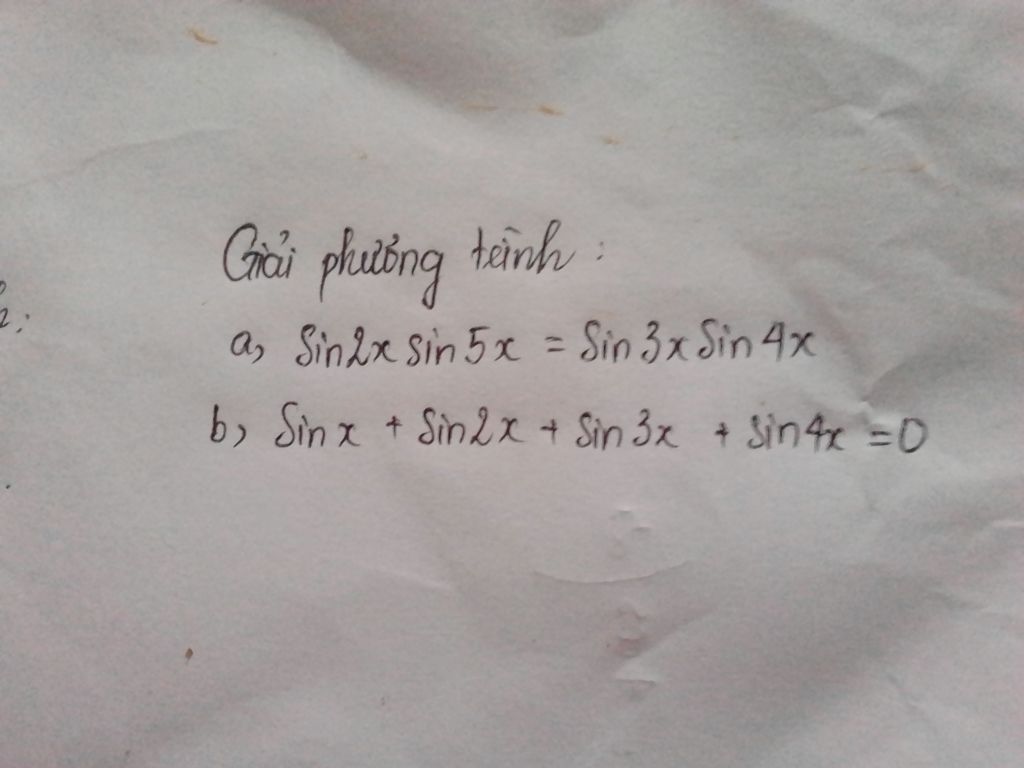 Giải phương trình :
a, Sin2x sin5x = Sin3x Sin4x
b, Sinx + Sin2x + Sin3x + sin4x = 0